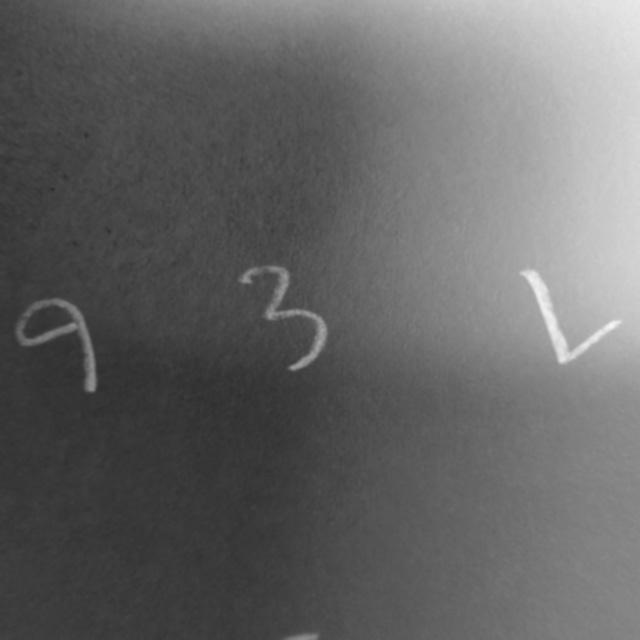 9 3 L